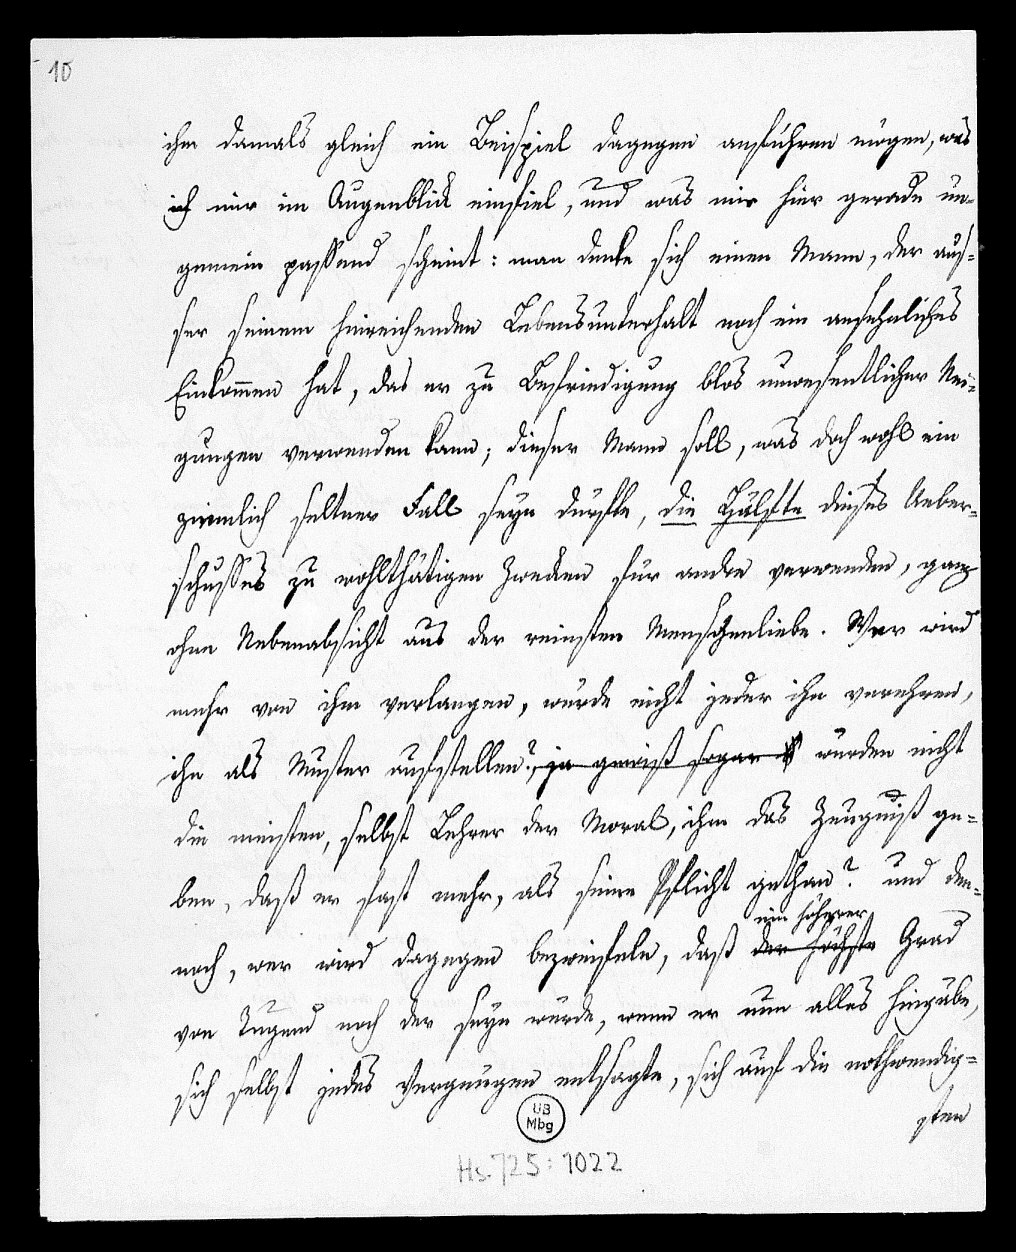 10
ihm damals gleich ein Beispiel dagegen anführen mögen, was
ich mir im Augenblick einfiel, und was mir hier gerade un-
gemein passend scheint: man denke sich einen Mann, der auf-
ser seinem hinreichenden Lebensunterhalt noch ein ansehnliches
Einkom̅en hat, das er zu Befriedigung blos unwesentlicher Nei-
gungen verwenden kann; dieser Mann soll, was doch wohl ein
ziemlich seltner Fall seyn dürfte, die Hälfte dieses Ueber-
schusses zu wohlthätigen Zwecken für andre verwenden, ganz
ohne Nebenabsicht aus der reinsten Menschenliebe. Wer wird
mehr von ihm verlangen, würde nicht jeder ihn verehren,
ihn als Muster aufstellen?, ja gewiß sogar würden nicht
die meisten, selbst Lehrer der Moral, ihm das Zeugniß ge-
ben, daß er fast mehr, als seine Pflicht gethan? und den-
ein höherer
noch, wer wird dagegen bezweifeln, daß der höchste Grad
von Tugend noch der seyn würde, wenn er nun alles hingäbe,
sich selbst jedes Vergnügen entsagte, sich auf die nothwendig-
sten
UB
Mbg
Hs. 725:1022